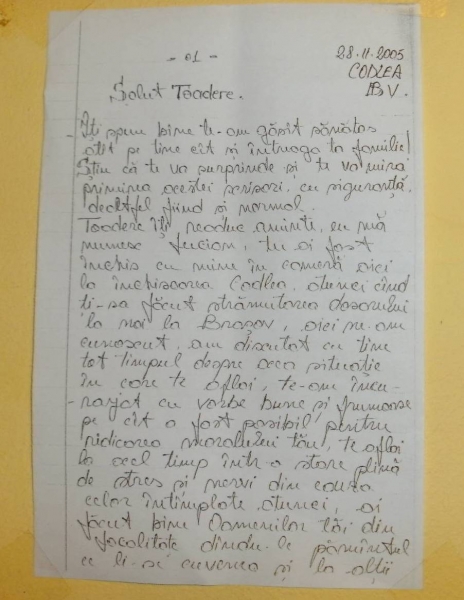 - 01 -
28.11.2005
CODLEA
BV.
Salut Toadere.
Îți spun bine te-am găsit sănătos
atît pe tine cît și întreaga ta familie!
Știu că te va surprinde și te va mira
primirea acestei scrisori, cu siguranță,
dealtfel fiind și normal.
Toadere îți readuc aminte, eu mă
numesc Lucian, tu ai fost
închis cu mine în cameră aici
la închisoarea Codlea, atunci cînd
ti-sa făcut strămutarea dosarului
la noi la Brașov, aici ne-am
cunoscut, am discutat cu tine
tot timpul despre acea situație
în care te aflai, te-am încu-
rajat cu vorbe bune și frumoase
pe cît a fost posibil, pentru
ridicarea moralului tău, te aflai
la acel timp într-o stare plină
de stres și nervi din cauza
celor întîmplate atunci, ai
făcut bine Oamenilor tăi din
localitate dîndu-le pămîntul
ce li-se cuvenea și la alții